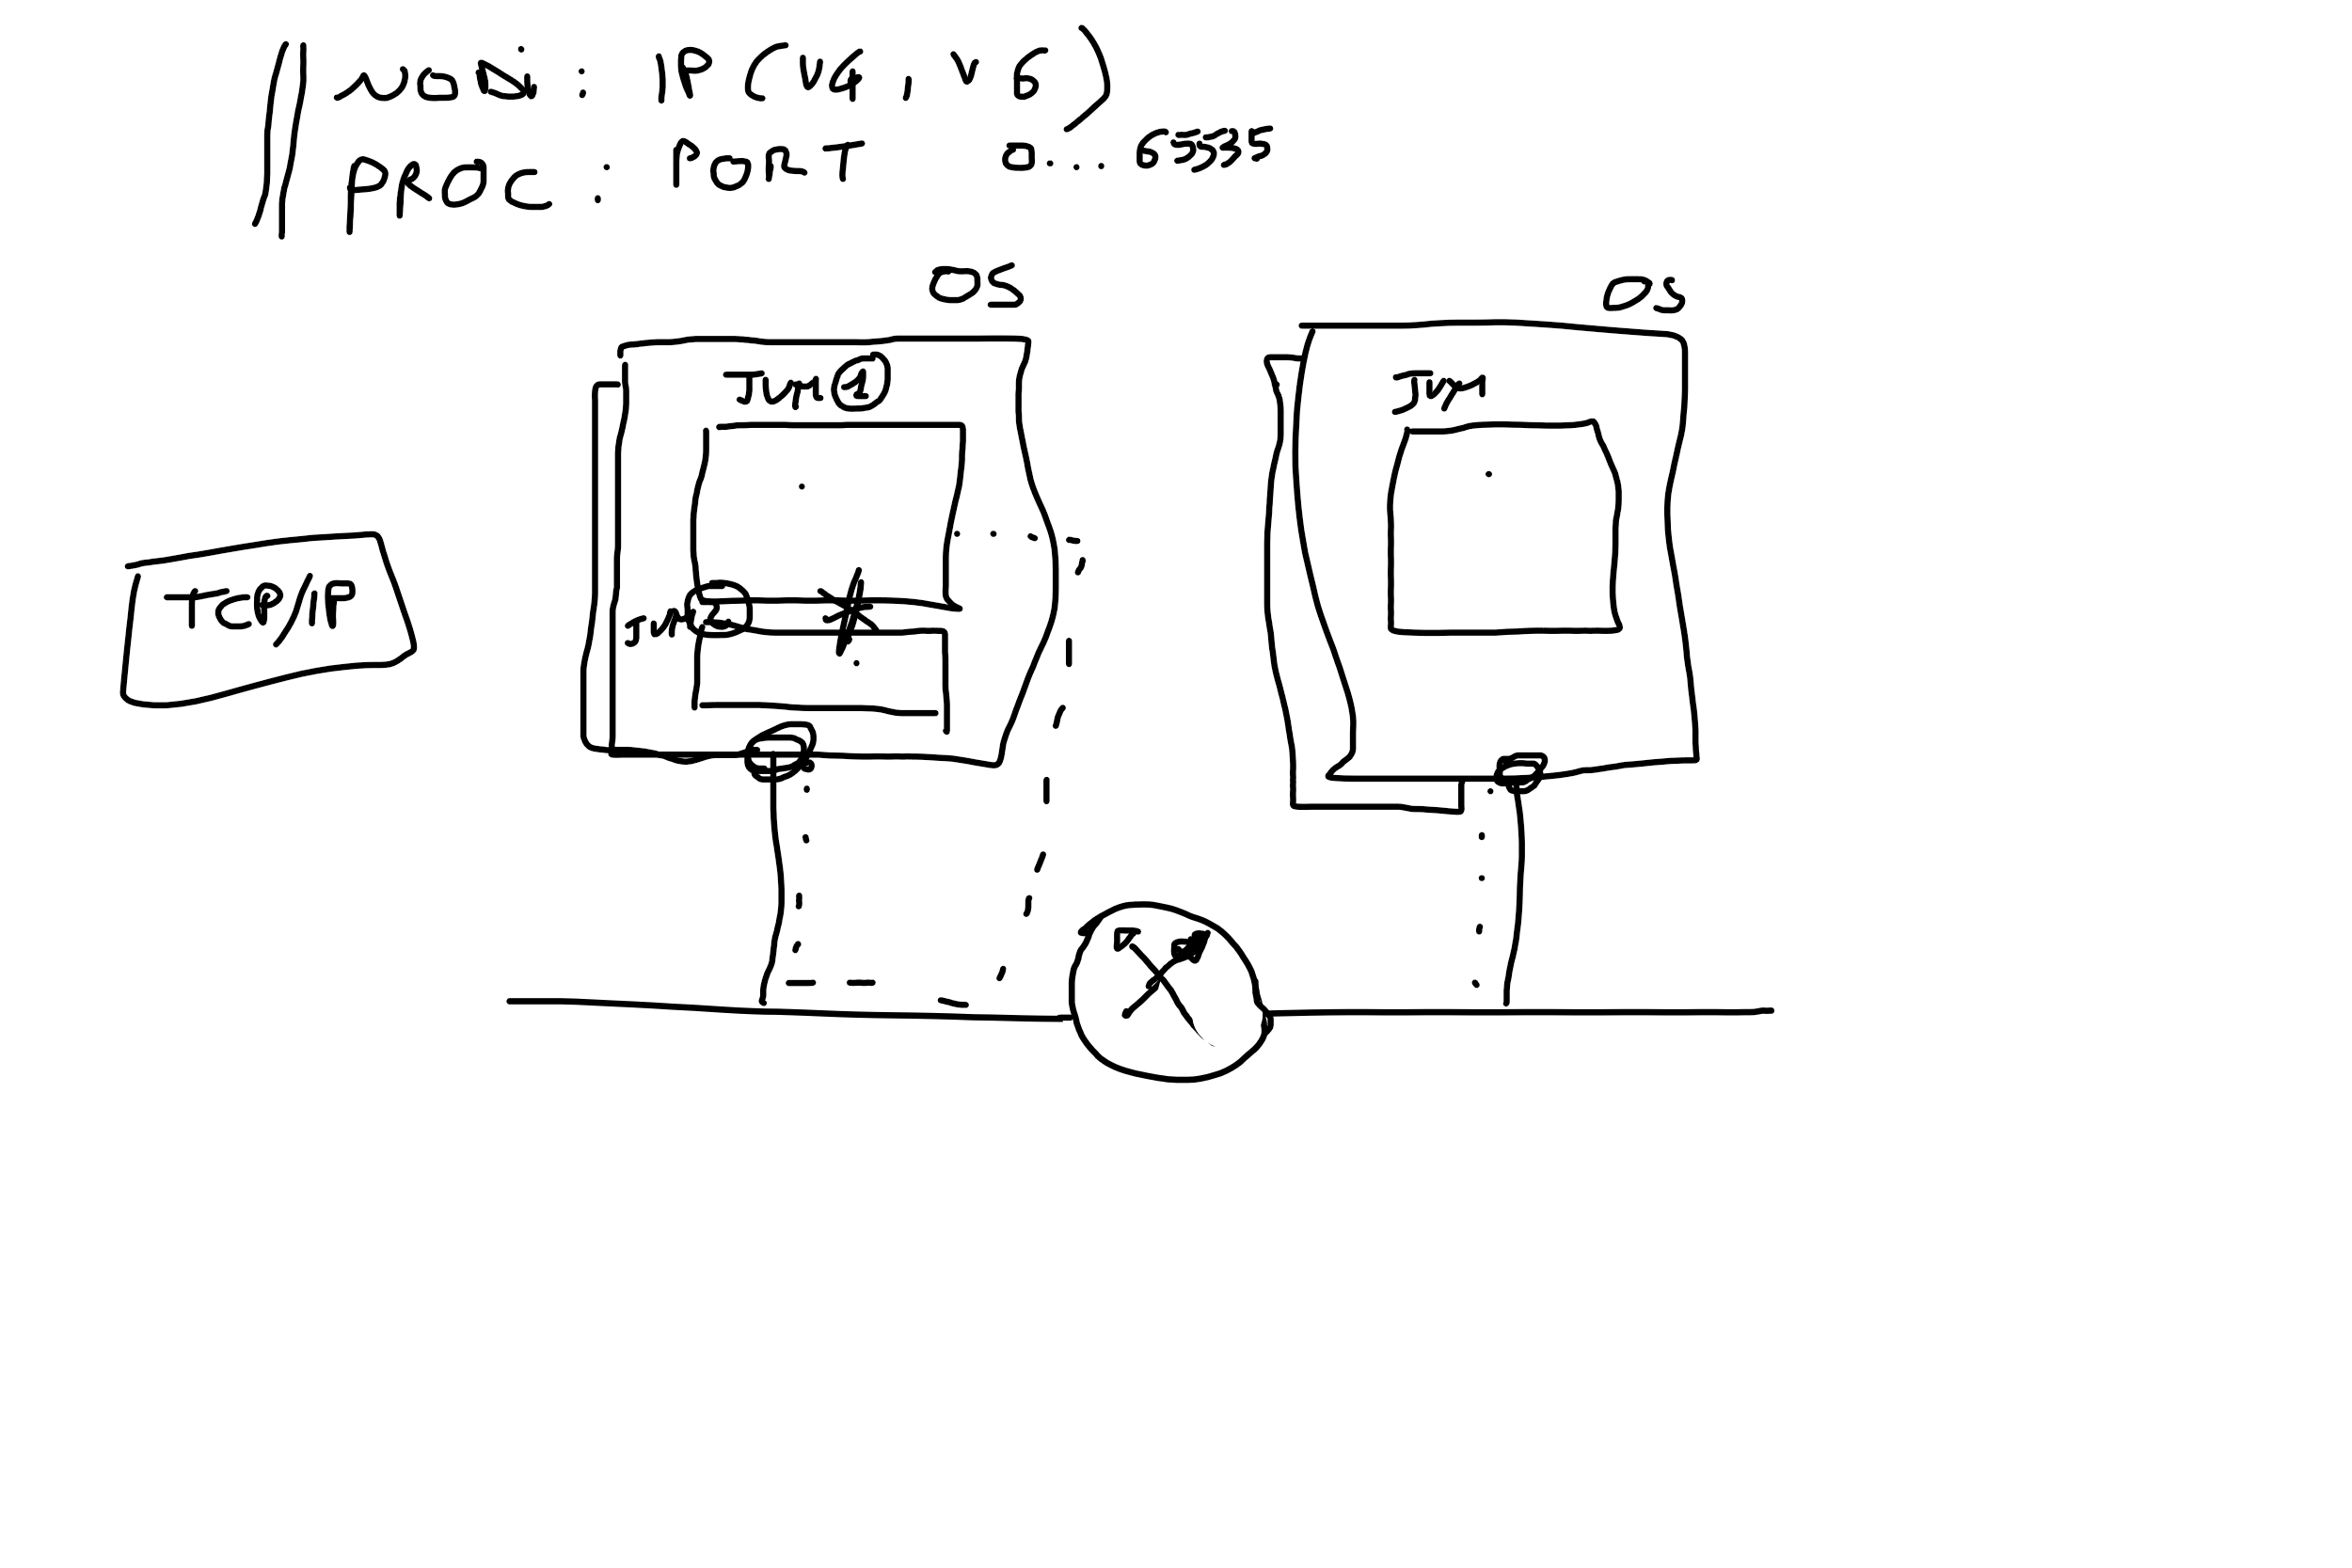 NODI : IP (V4, V6)
PROC : PORT 0... 65535
OS
OS
JVM 1
JVM
TCP/IP
JVM 2